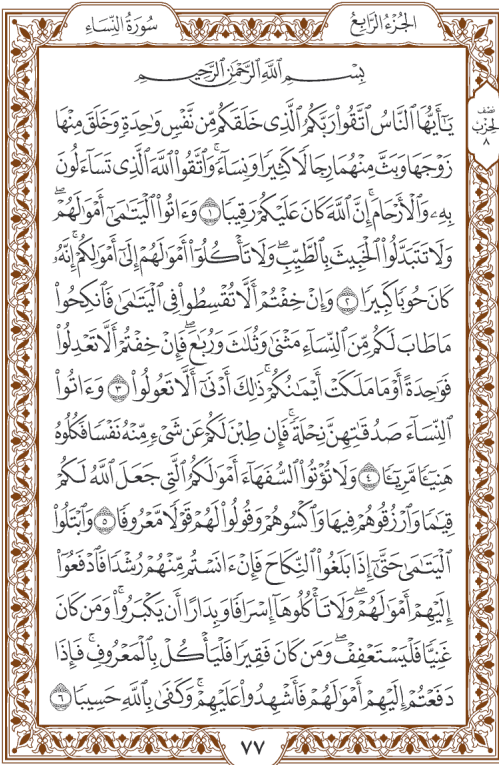 الجُزْءُ الرَّابِعُ
سُورَةُ النِّسَاءِ
نصف
الحزب
٨
بِسْمِ اللَّهِ الرَّحْمَٰنِ الرَّحِيمِ
يَٰٓأَيُّهَا ٱلنَّاسُ ٱتَّقُوا۟ رَبَّكُمُ ٱلَّذِى خَلَقَكُم مِّن نَّفْسٍ وَٰحِدَةٍ وَخَلَقَ مِنْهَا
زَوْجَهَا وَبَثَّ مِنْهُمَا رِجَالًا كَثِيرًا وَنِسَآءً ۚ وَٱتَّقُوا۟ ٱللَّهَ ٱلَّذِى تَسَآءَلُونَ
بِهِۦ وَٱلْأَرْحَامَ ۚ إِنَّ ٱللَّهَ كَانَ عَلَيْكُمْ رَقِيبًا ١ وَءَاتُوا۟ ٱلْيَتَٰمَىٰٓ أَمْوَٰلَهُمْ ۖ
وَلَا تَتَبَدَّلُوا۟ ٱلْخَبِيثَ بِٱلطَّيِّبِ ۖ وَلَا تَأْكُلُوٓا۟ أَمْوَٰلَهُمْ إِلَىٰٓ أَمْوَٰلِكُمْ ۚ إِنَّهُۥ
كَانَ حُوبًا كَبِيرًا ٢ وَإِنْ خِفْتُمْ أَلَّا تُقْسِطُوا۟ فِى ٱلْيَتَٰمَىٰ فَٱنكِحُوا۟
مَا طَابَ لَكُم مِّنَ ٱلنِّسَآءِ مَثْنَىٰ وَثُلَٰثَ وَرُبَٰعَ ۖ فَإِنْ خِفْتُمْ أَلَّا تَعْدِلُوا۟
فَوَٰحِدَةً أَوْ مَا مَلَكَتْ أَيْمَٰنُكُمْ ۚ ذَٰلِكَ أَدْنَىٰٓ أَلَّا تَعُولُوا۟ ٣ وَءَاتُوا۟
ٱلنِّسَآءَ صَدُقَٰتِهِنَّ نِحْلَةً ۚ فَإِن طِبْنَ لَكُمْ عَن شَىْءٍ مِّنْهُ نَفْسًا فَكُلُوهُ
هَنِيٓـًٔا مَّرِيٓـًٔا ٤ وَلَا تُؤْتُوا۟ ٱلسُّفَهَآءَ أَمْوَٰلَكُمُ ٱلَّتِى جَعَلَ ٱللَّهُ لَكُمْ
قِيَٰمًا وَٱرْزُقُوهُمْ فِيهَا وَٱكْسُوهُمْ وَقُولُوا۟ لَهُمْ قَوْلًا مَّعْرُوفًا ٥ وَٱبْتَلُوا۟
ٱلْيَتَٰمَىٰ حَتَّىٰٓ إِذَا بَلَغُوا۟ ٱلنِّكَاحَ فَإِنْ ءَانَسْتُم مِّنْهُمْ رُشْدًا فَٱدْفَعُوٓا۟
إِلَيْهِمْ أَمْوَٰلَهُمْ ۖ وَلَا تَأْكُلُوهَآ إِسْرَافًا وَبِدَارًا أَن يَكْبَرُوا۟ ۚ وَمَن كَانَ
غَنِيًّا فَلْيَسْتَعْفِفْ ۖ وَمَن كَانَ فَقِيرًا فَلْيَأْكُلْ بِٱلْمَعْرُوفِ ۚ فَإِذَا
دَفَعْتُمْ إِلَيْهِمْ أَمْوَٰلَهُمْ فَأَشْهِدُوا۟ عَلَيْهِمْ ۚ وَكَفَىٰ بِٱللَّهِ حَسِيبًا ٦
٧٧